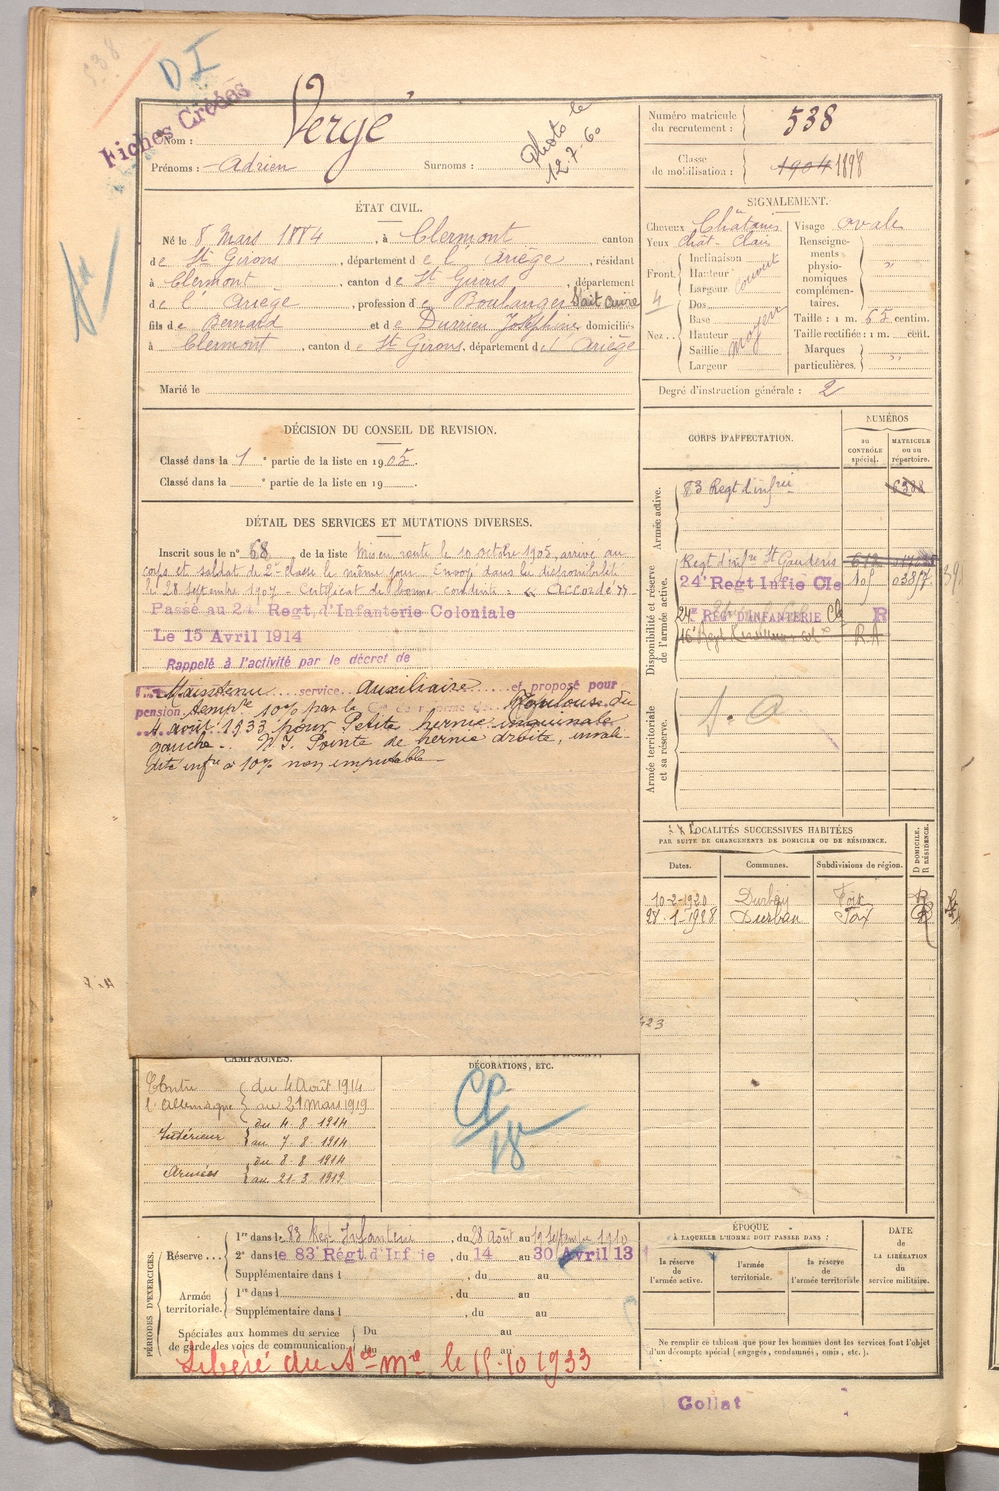 538
D I
Fiches Créées
Nom : Vergé
Prénoms : Adrien Surnoms :
Photo le
12.7.60
Numéro matricule
du recrutement : 538
Classe
de mobilisation : 1904 1898
ÉTAT CIVIL.
Né le 8 Mars 1884, à Clermont canton
de St Girons, département de l'Ariège, résidant
à Clermont, canton de St Girons, département
de l'Ariège, profession de Boulanger
fils de Bernard et de Durrieu Joséphine, domiciliés
à Clermont, canton de St Girons, département de l'Ariège
Marié le
SIGNALEMENT.
Cheveux Châtains
Yeux chât. clair
Front. Inclinaison
Hauteur
Largeur
couvert
Nez Dos
Base
Hauteur
Saillie
Largeur
moyen
Visage ovale
Renseigne-
ments
physio-
nomiques
complémen-
taires. "
Taille : 1 m. 65 centim.
Taille rectifiée : 1 m. cent.
Marques
particulières. "
Degré d'instruction générale : 2
DÉCISION DU CONSEIL DE REVISION.
Classé dans la 1e partie de la liste en 1905.
Classé dans la e partie de la liste en 19
DÉTAIL DES SERVICES ET MUTATIONS DIVERSES.
Inscrit sous le n° 68 de la liste Mis en route le 10 octobre 1905, arrivé au
corps et soldat de 2e classe le même jour. Envoyé dans la disponibilité
le 28 septembre 1907 - Certificat de bonne conduite : « Accordé »
Passé au 24e Regt d'Infanterie Coloniale
Le 15 Avril 1914
Rappelé à l'activité par le décret de
Maintenu service Auxiliaire et proposé pour
pension tempre 10% par la Toulouse du
4 août 1933 pour Petite hernie inguinale
gauche. Pointe de hernie droite, invali-
dité infre à 10% non imputable
CORPS D'AFFECTATION.
NUMÉROS
au
CONTRÔLE
spécial.
MATRICULE
ou au
répertoire.
Armée active.
83 Regt d'infrie
Disponibilité et réserve
de l'armée active.
Regt d'infre St Gaudens
24e Regt Infie Cle
24e REGT D'INFANTERIE Cle R
R.A
Armée territoriale
et sa réserve.
LOCALITÉS SUCCESSIVES HABITÉES
PAR SUITE DE CHANGEMENTS DE DOMICILE OU DE RÉSIDENCE.
Dates. Communes. Subdivisions de région. D DOMICILE. R RÉSIDENCE.
10-2-1920 Durban Foix R
27-1-1928 Durban Foix R
CAMPAGNES.
Contre
l'Allemagne
du 4 Août 1914
au 21 mars 1919
Intérieur
du 4-8-1914
au 7-8-1914
Armées
du 8-8-1914
au 21-3-1919
DÉCORATIONS, ETC.
PÉRIODES D'EXERCICES.
Réserve
1re dans le 83 Regt Infanterie, du 28 Août au 19 Septembre 1910
2e dans le 83e Régt d'Infie, du 14 au 30 Avril 13
Supplémentaire dans l , du au
Armée
territoriale.
1re dans l , du au
Supplémentaire dans l , du au
Spéciales aux hommes du service
de garde des voies de communication.
Du au
Du au
Libéré du Sce mre le 15-10-1933
ÉPOQUE
À LAQUELLE L'HOMME DOIT PASSER DANS :
la réserve
de
l'armée active.
l'armée
territoriale.
la réserve
de
l'armée territoriale
DATE
de
LA LIBÉRATION
du
service militaire.
Ne remplir ce tableau que pour les hommes dont les services font l'objet
d'un décompte spécial (engagés, condamnés, omis, etc.).
Collat